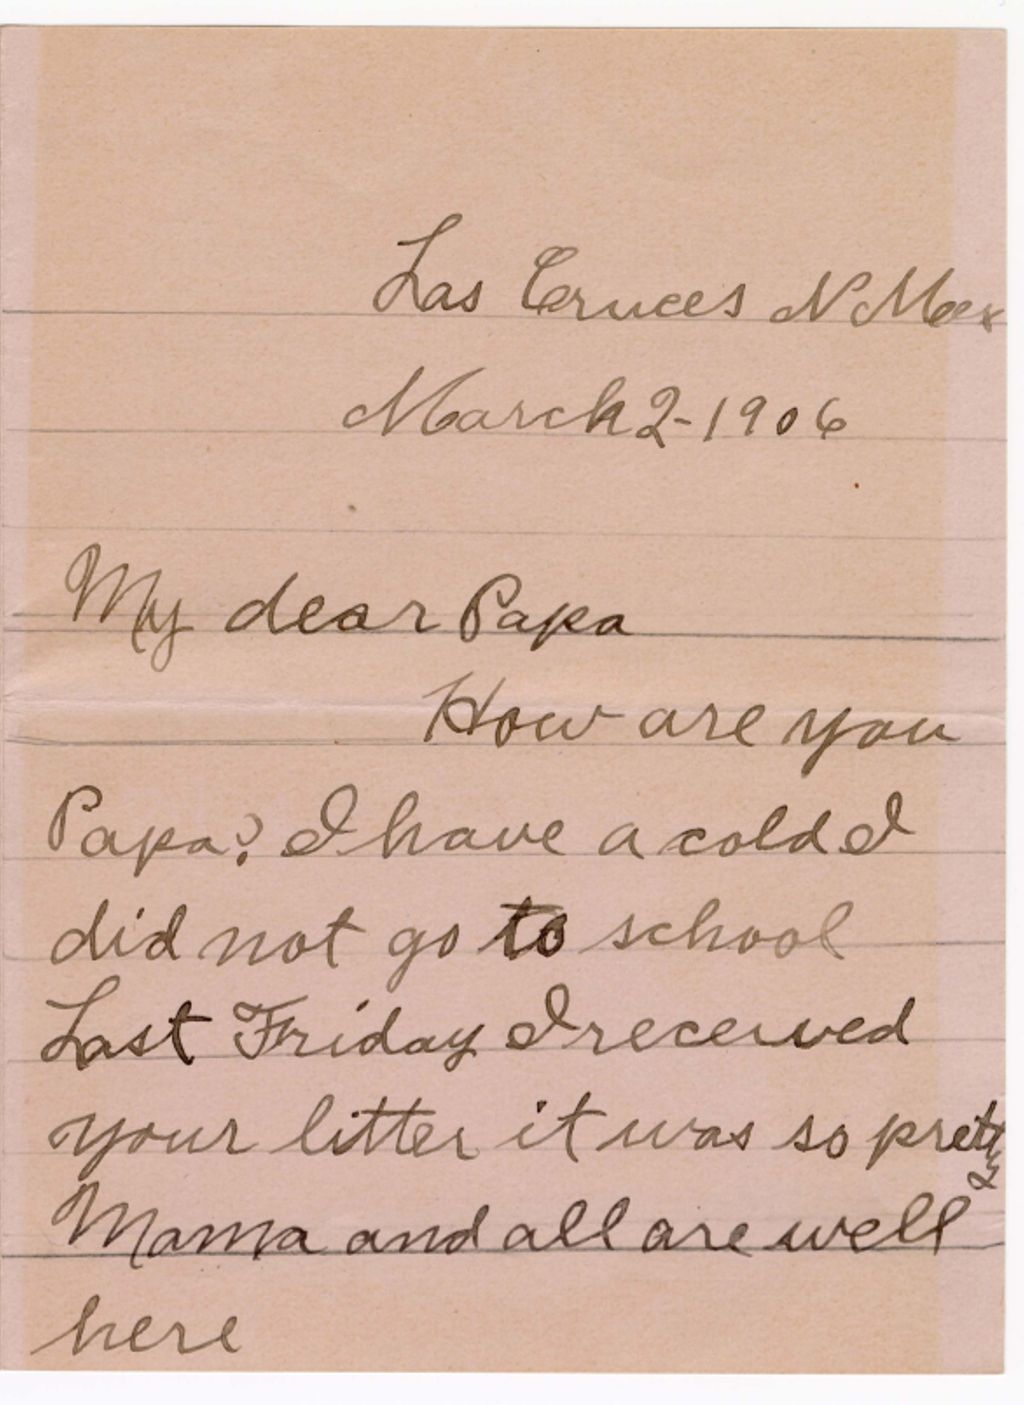 Las Cruces N Mex
March 2-1906
My dear Papa
How are you
Papa? I have a cold I
did not go to school
Last Friday I received
your litter it was so pretty
Mama and all are well
here